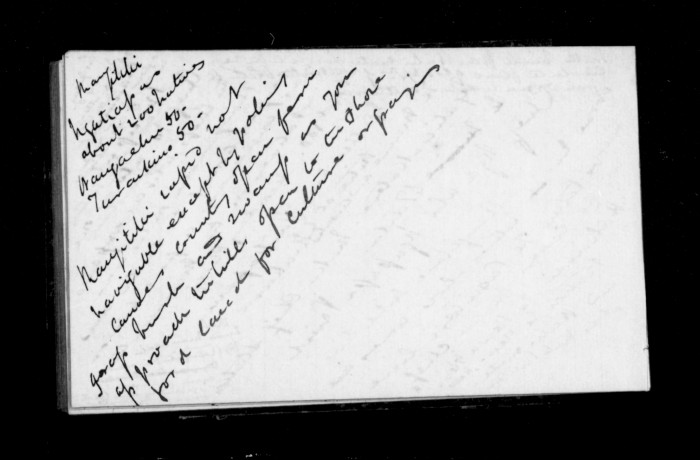 Mangitiki
Ngatiapa
about 200 natives
Wangaehu 50 -
Turakina 50 -
Rangitiki repro not
navigable except by poling
canoes country open fern
grap bush and swamp as you
approach the hills open to the Shore
good land for culture or grazing